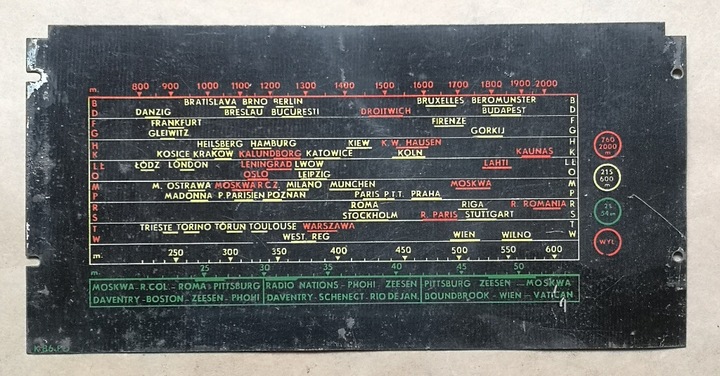 m. 800 900 1000 1100 1200 1300 1400 1600 1700 1800 1900 2000
B BRATISLAVA BRNO BERLIN BRUXELLES BEROMÜNSTER B
D DANZIG BRESLAU BUCUREŞTI DROITWICH BUDAPEST D
F FRANKFURT FIRENZE F
G GLEIWITZ GORKIJ G
H HEILSBERG HAMBURG KIEW K.W. HAUSEN H
K KOSICE KRAKÓW KALUNDBORG KATOWICE KÖLN KAUNAS K
LŁ ŁÓDZ LONDON LENINGRAD LWOW LAHTI LŁ
O OSLO LEIPZIG O
M M. OSTRAWA MOSKWA R.C.Z. MILANO MÜNCHEN MOSKWA M
P MADONNA P.PARISIEN POZNAN PARIS P.T.T. PRAHA P
R ROMA RIGA R. ROMANIA R
S STOCKHOLM R. PARIS STUTTGART S
T TRIESTE TORINO TORUN TOULOUSE WARSZAWA T
W WEST. REG WIEN WILNO W
m. 250 300 350 400 450 500 550 600
m. 25 30 35 40 45 50
MOSKWA-R.COL.-ROMA-PITTSBURG RADIO NATIONS-PHOHI ZEESEN PITTSBURG ZEESEN - MOSKWA
DAVENTRY-BOSTON-ZEESEN-PHOHI DAVENTRY-SCHENECT. RIO DE JAN. BOUNDBROOK-WIEN-VATICAN
760
2000
m
215
600
m
WYŁ.